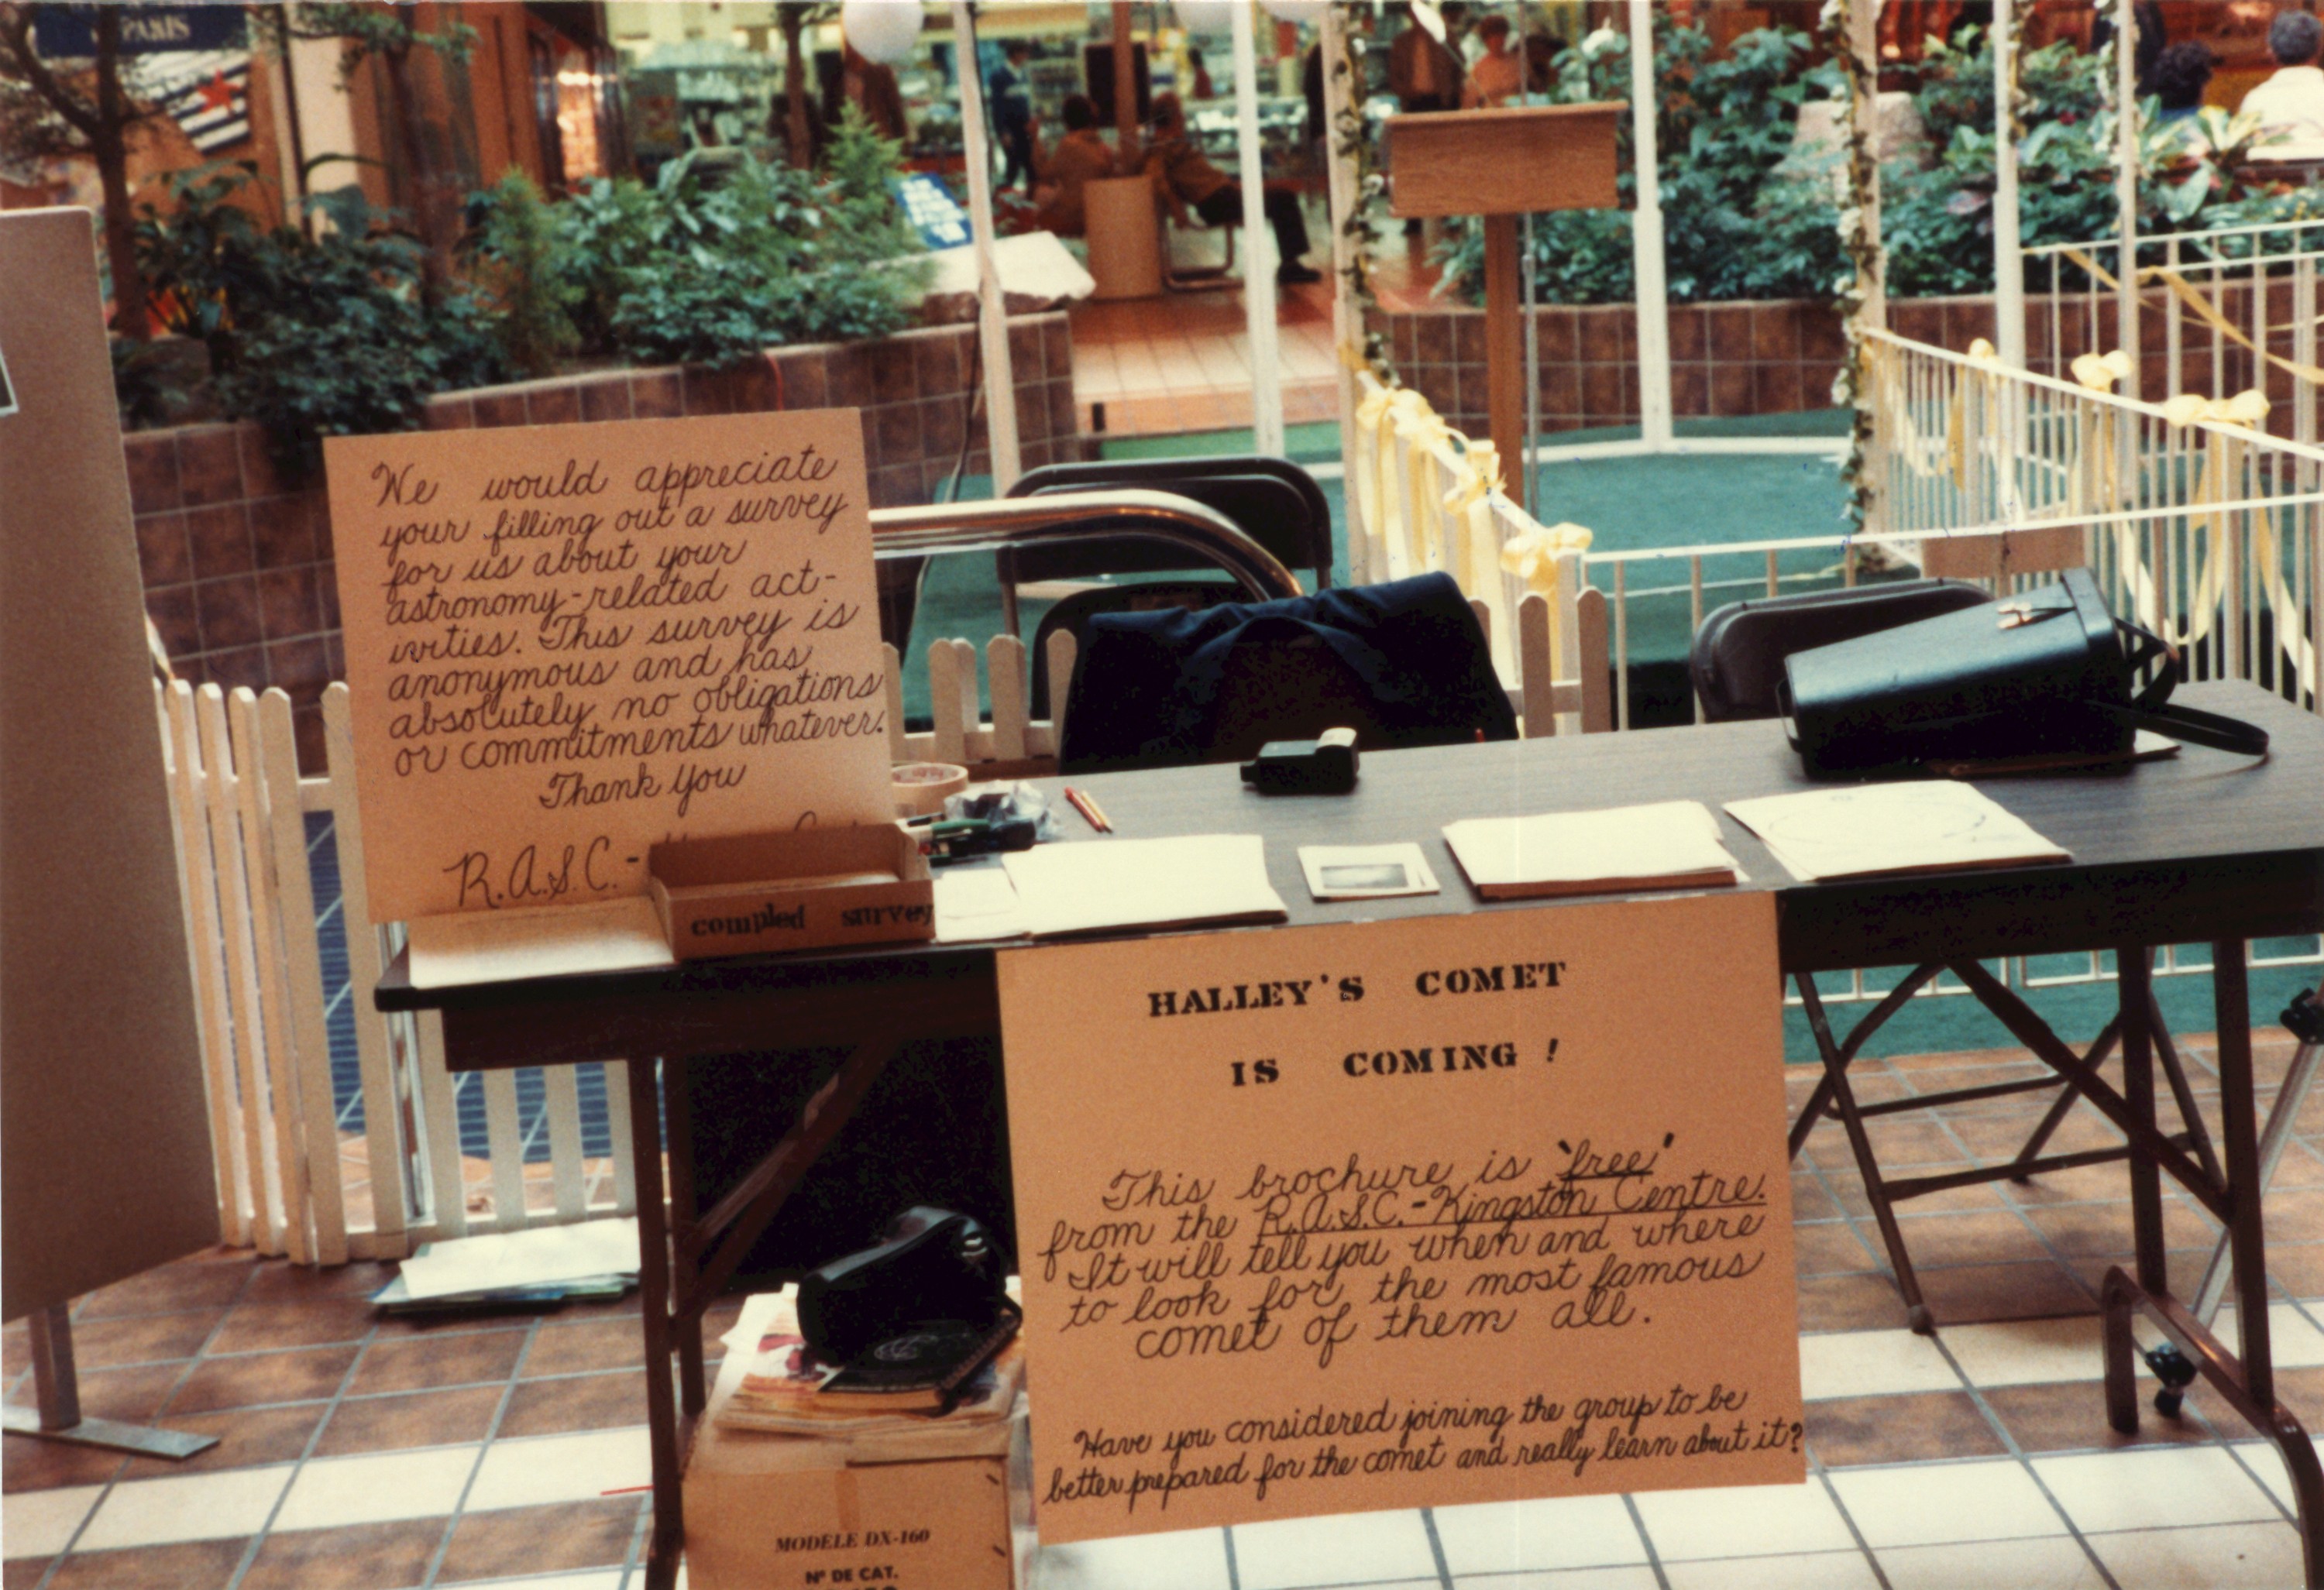 PARIS
We would appreciate
your filling out a survey
for us about your
astronomy-related act-
ivities. This survey is
anonymous and has
absolutely no obligations
or commitments whatever.
Thank You
R.A.S.C.-
compled survey
HALLEY'S COMET
IS COMING!
This brochure is 'free'
from the R.A.S.C.-Kingston Centre.
It will tell you when and where
to look for the most famous
comet of them all.
Have you considered joining the group to be
better prepared for the comet and really learn about it?
MODÈLE DX-160
Nº DE CAT.